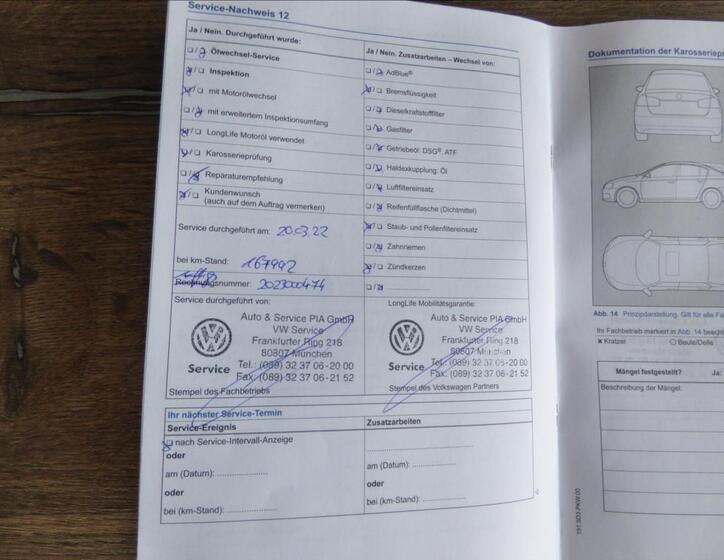 Service-Nachweis 12
Ja / Nein. Durchgeführt wurde:
Ölwechsel-Service
Inspektion
mit Motorölwechsel
mit erweitertem Inspektionsumfang
LongLife Motoröl verwendet
Karosserieprüfung
Reparaturempfehlung
Kundenwunsch
(auch auf dem Auftrag vermerken)
Service durchgeführt am: 20.03.22
bei km-Stand: 167992
Rechnungsnummer: 2023000474
Service durchgeführt von:
Auto & Service PIA GmbH
VW Service
Frankfurter Ring 218
80807 München
Service Tel.: (089) 32 37 06-20 00
Fax. (089) 32 37 06-21 52
Stempel des Fachbetriebs
Ja / Nein. Zusatzarbeiten – Wechsel von:
AdBlue®
Bremsflüssigkeit
Dieselkraftstofffilter
Gasfilter
Getriebeöl: DSG®, ATF
Haldexkupplung: Öl
Luftfiltereinsatz
Reifenfüllflasche (Dichtmittel)
Staub- und Pollenfiltereinsatz
Zahnriemen
Zündkerzen
LongLife Mobilitätsgarantie:
Auto & Service PIA GmbH
VW Service
Frankfurter Ring 218
80807 München
Service Tel.: (089) 32 37 06-20 00
Fax. (089) 32 37 06-21 52
Stempel des Volkswagen Partners
Ihr nächster Service-Termin
Service-Ereignis
nach Service-Intervall-Anzeige
oder
am (Datum):
oder
bei (km-Stand):
Zusatzarbeiten
am (Datum):
oder
bei (km-Stand):
Dokumentation der Karosseriepr
Abb. 14 Prinzipdarstellung. Gilt für alle Fa
Ihr Fachbetrieb markiert in Abb. 14 besch
Kratzer
Beule/Delle
Mängel festgestellt? Ja:
Beschreibung der Mängel: